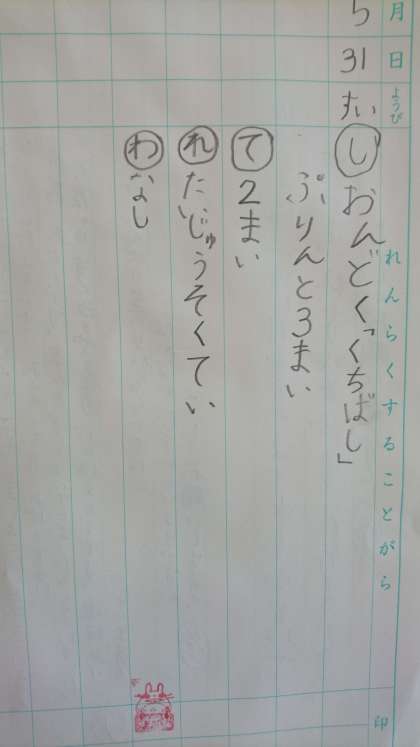 5月
31日
すいようび
れんらくすることがら
し おんどく「くちばし」
ぷりんと3まい
て 2まい
れ たいじゅうそくてい
わ なし
印